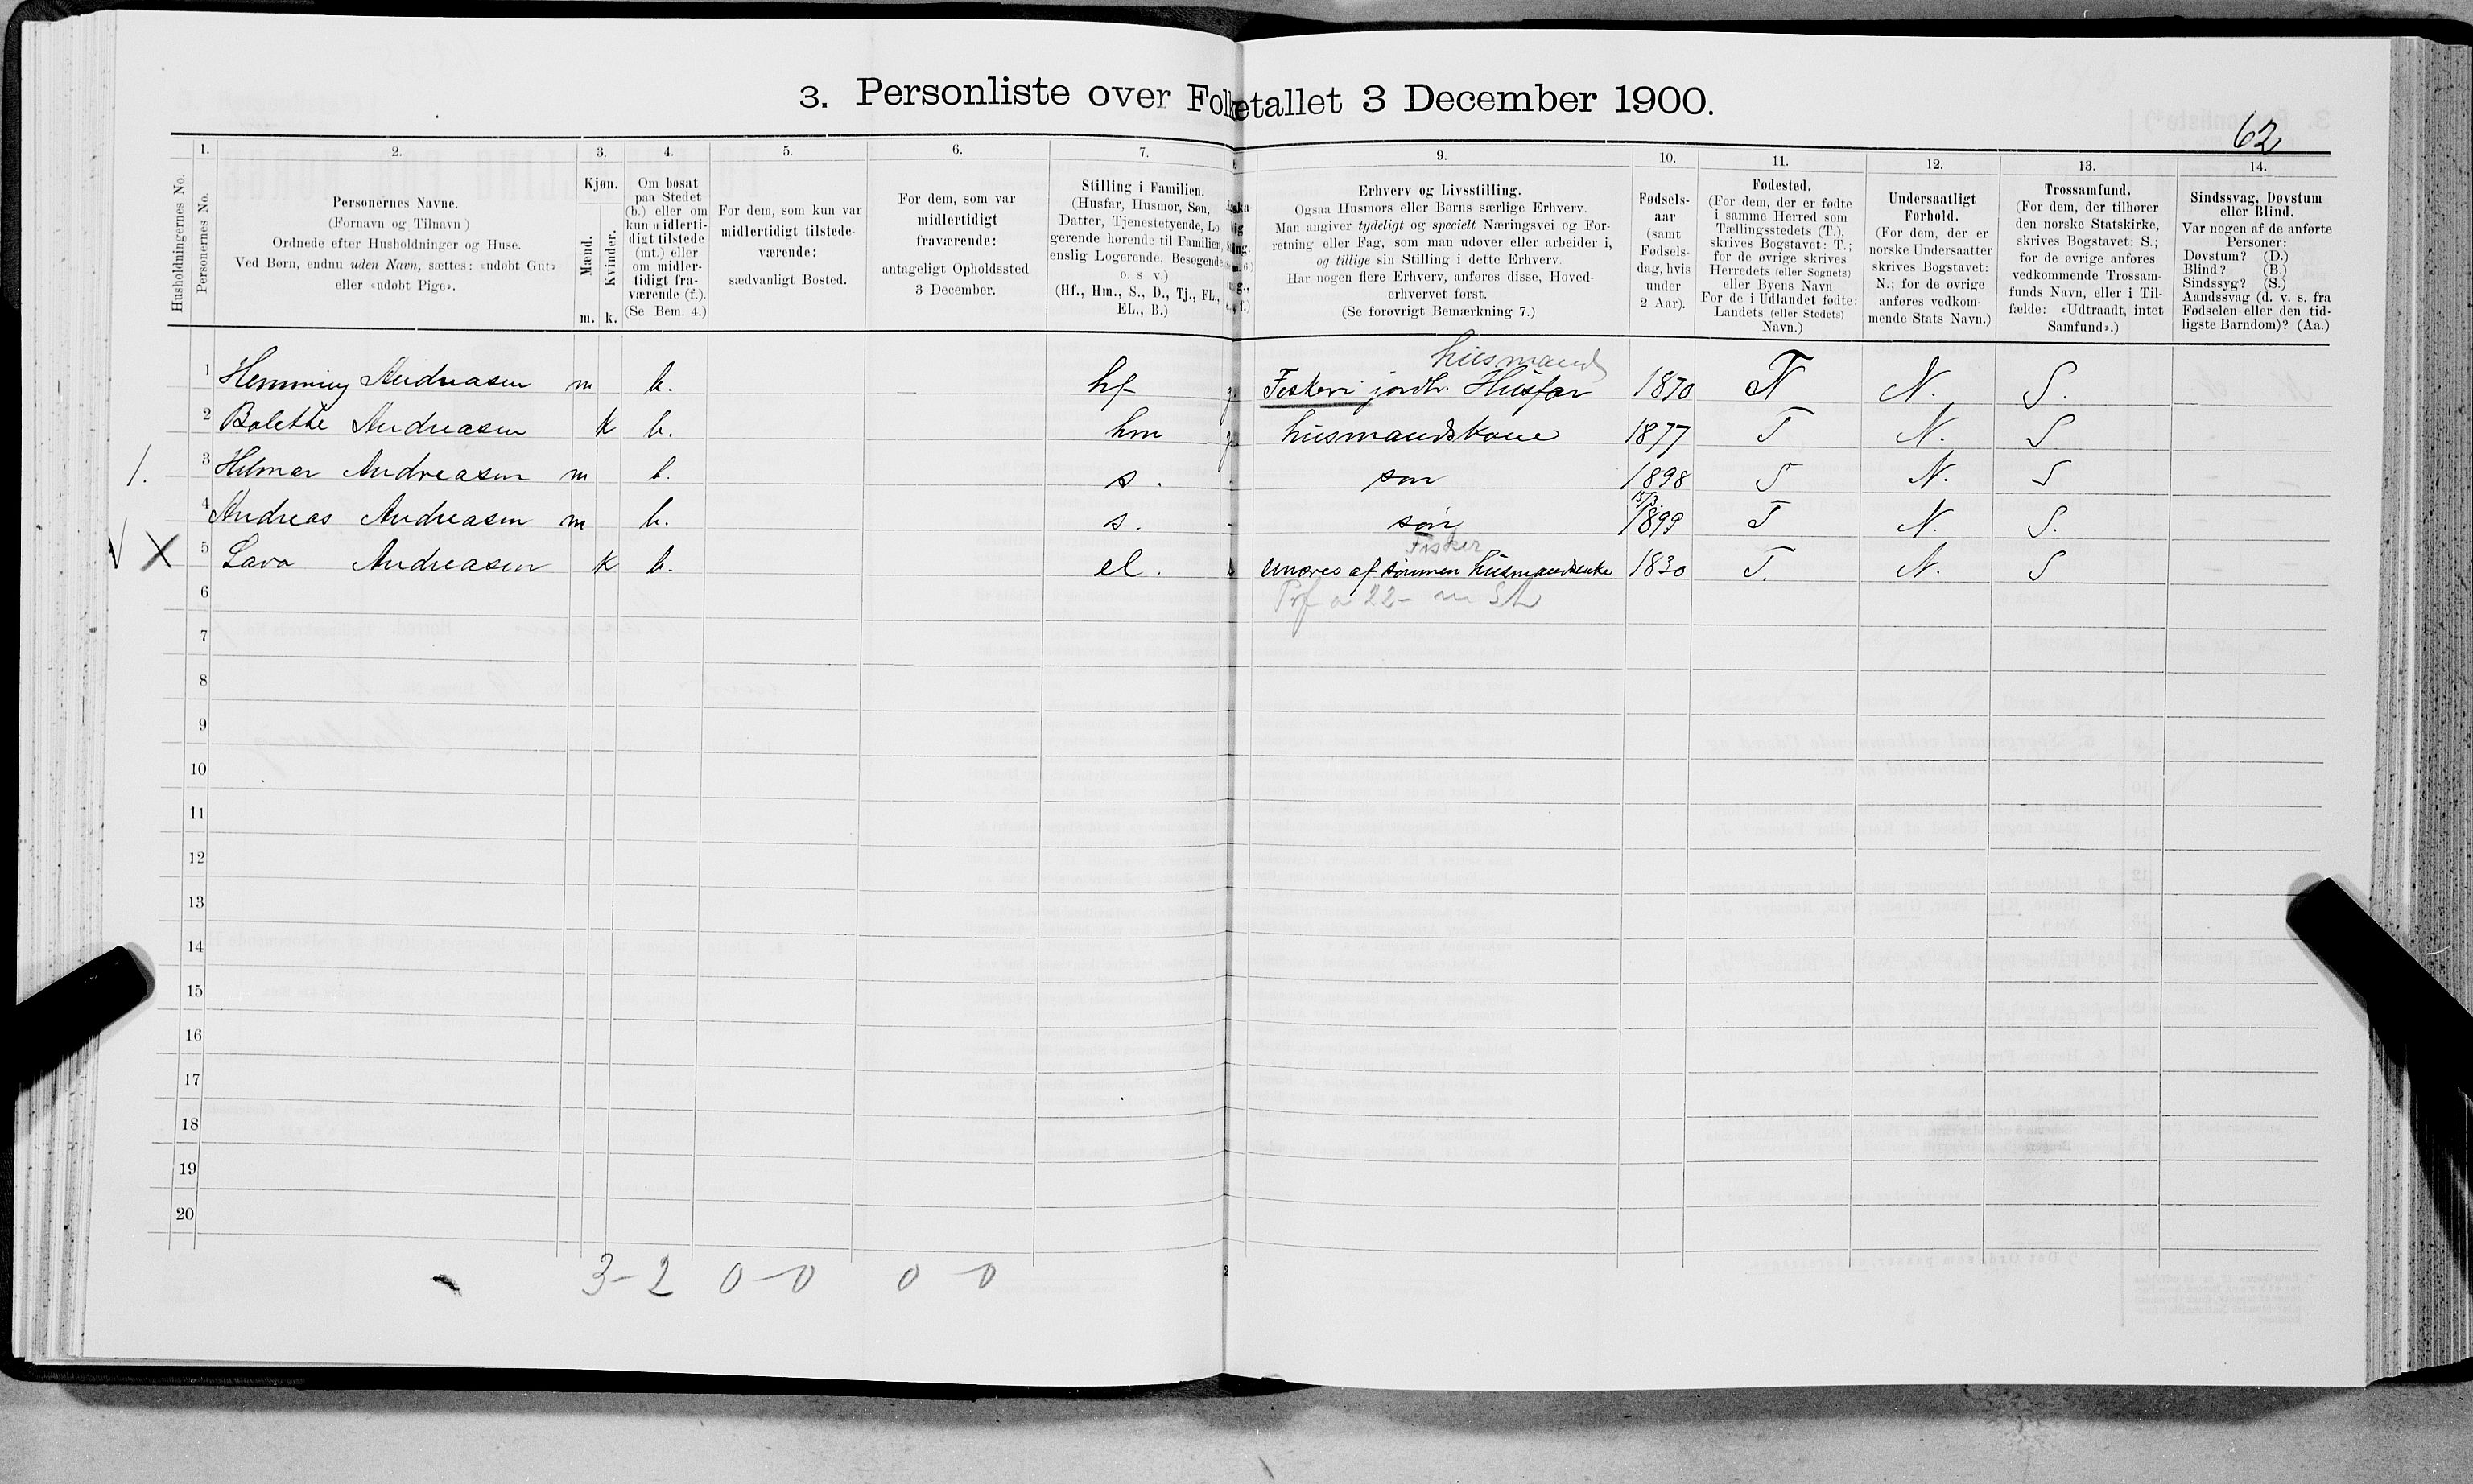 3. Personliste over Folketallet 3 December 1900.
62
1. 2. 3. 4. 5. 6. 7. 9. 10. 11. 12. 13. 14.
Husholdningernes No.
Personernes No.
Personernes Navne.
(Fornavn og Tilnavn)
Ordnede efter Husholdninger og Huse.
Ved Børn, endnu uden Navn, sættes: «udøbt Gut»
eller «udøbt Pige».
Kjøn.
Mænd.
Kvinder.
m. k.
Om bosat
paa Stedet
(b.) eller om
kun midlerti-
digt tilstede
(mt.) eller
om midler-
tidigt fra-
værende (f.).
(Se Bem. 4.)
For dem, som kun var
midlertidigt tilstede-
værende:
sædvanligt Bosted.
For dem, som var
midlertidigt
fraværende:
antageligt Opholdssted
3 December.
Stilling i Familien.
(Husfar, Husmor, Søn,
Datter, Tjenestetyende, Lo-
gerende hørende til Familien,
enslig Logerende, Besøgende
o. s v.)
(Hf., Hm., S., D., Tj., FL.,
EL., B.)
Erhverv og Livsstilling.
Ogsaa Husmors eller Børns særlige Erhverv.
Man angiver tydeligt og specielt Næringsvei og For-
retning eller Fag, som man udøver eller arbeider i,
og tillige sin Stilling i dette Erhverv.
Har nogen flere Erhverv, anføres disse, Hoved-
erhvervet først.
(Se forøvrigt Bemærkning 7.)
Fødsels-
aar
(samt
Fødsels-
dag, hvis
under
2 Aar).
Fødested.
(For dem, der er fødte
i samme Herred som
Tællingsstedets (T.),
skrives Bogstavet: T.;
for de øvrige skrives
Herredets (eller Sognets)
eller Byens Navn
For de i Udlandet fødte:
Landets (eller Stedets)
Navn.)
Undersaatligt
Forhold.
(For dem, der er
norske Undersaatter
skrives Bogstavet:
N.; for de øvrige
anføres vedkom-
mende Stats Navn.)
Trossamfund.
(For dem, der tilhører
den norske Statskirke,
skrives Bogstavet: S.;
for de øvrige anføres
vedkommende Trossam-
funds Navn, eller i Til-
fælde: «Udtraadt, intet
Samfund».)
Sindssvag, Døvstum
eller Blind.
Var nogen af de anførte
Personer:
Døvstum? (D.)
Blind? (B.)
Sindssyg? (S.)
Aandssvag (d. v. s. fra
Fødselen eller den tid-
ligste Barndom)? (Aa.)
husmand
1 Hemming Andreasen m b. hf Fiskeri jordb. Husfar 1870 N. S.
2 Bolette Andreasen k b. hm husmandskone 1877 T N. S
1. 3 Hilmar Andreasen m b. s. son 1898 T N. S
15/3
4 Andreas Andreasen m b. s. - søn 1899 T N. S.
Fisker
X 5 Lava Andreasen k b. el. af sønnen husmandsenke 1830 T. N. S
6
7
8
9
10
11
12
13
14
15
16
17
18
19
20
3-2 0-0 0-0